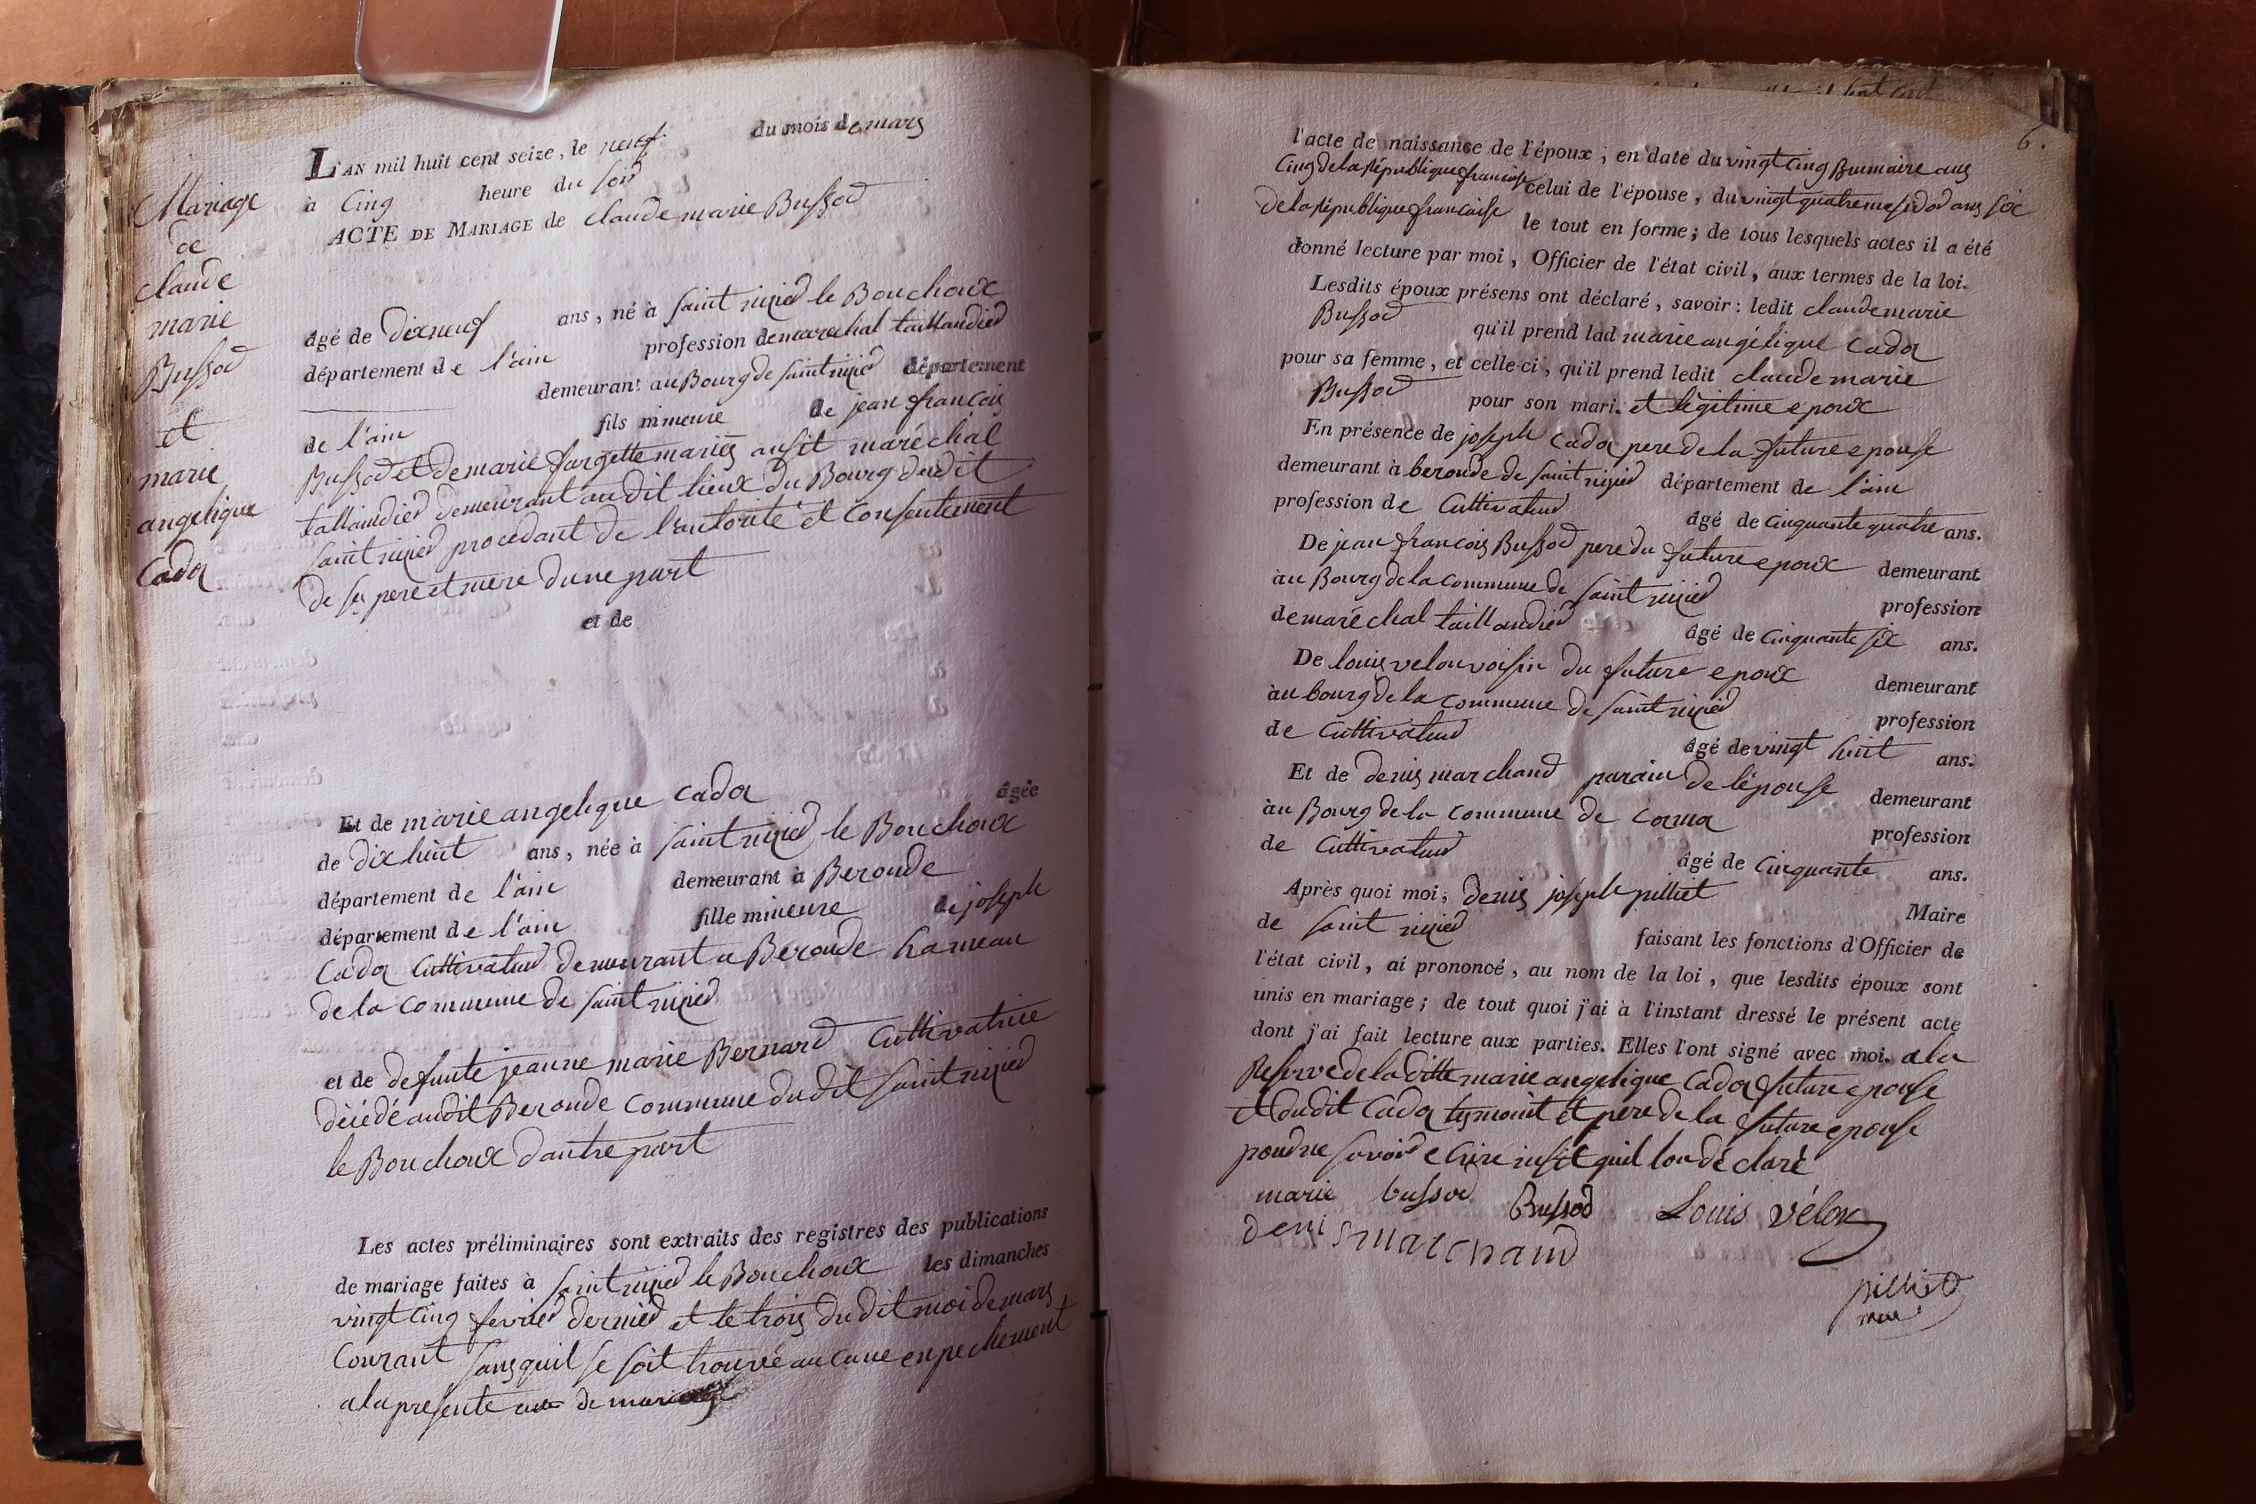 Mariage
de
claude
marie
Bussod
et
marie
angelique
Cador
L'AN mil huit cent seize, le neuf du mois de mars
à Cinq heure du soir
ACTE DE MARIAGE de claude marie Bussod
âgé de dixneuf ans, né à saint nizier le Bouchoux
département de l'ain profession de marechal taillandier
demeurant au Bourg de saint nizier département
de l'ain fils mineure de jean francois
Bussod et de marie fargette mariés ausit maréchal
taillaindier demeurant audit lieux du Bourg dudit
saint nizier procédant de l'autorité et Consentement
de ses pere et mere dune part
et de
Et de marie angelique Cador âgée
de dix huit ans, née à saint nizier le Bouchoux
département de l'ain demeurant à Beroude
département de l'ain fille mineure de joseph
Cador Cultivateur demeurant a Beroude hameau
de la Commune de saint nizier
et de defunte jeanne marie Bernard Cultivatrice
décédé audit Beroude Commune dudit saint nizier
le Bouchoux dautre part
Les actes préliminaires sont extraits des registres des publications
de mariage faites à saint nizier le Bouchoux les dimanches
vingt Cinq fevrier dernier et le trois dudit moi de mars
Courant sans quil se soit trouvé aucune enpechement
a la presente acte de mariage
6.
l'acte de naissance de l'époux; en date du vingt Cinq Brumaire ans
Cinq de la république francaise celui de l'épouse, du vingt quatre messidor ans six
de la république francaise le tout en forme; de tous lesquels actes il a été
donné lecture par moi, Officier de l'état civil, aux termes de la loi.
Lesdits époux présens ont déclaré, savoir: ledit claude marie
Bussod qu'il prend lad marie angélique Cador
pour sa femme, et celle-ci, qu'il prend ledit claude marie
Bussod pour son mari. et légitime epoux
En présence de joseph Cador pere de la future epouse
demeurant à beroude de saint nizier département de l'ain
profession de Cultivateur âgé de Cinquante quatre ans.
De jean francois Bussod pere du future epoux demeurant
àu Bourg de la Commune de saint nizier profession
de maréchal taillandier âgé de Cinquante six ans.
De louis velon voisin du future epoux demeurant
àu bourg de la Commune de saint nizier profession
de Cultivateur âgé de vingt huit ans.
Et de denis marchand parain de l'épouse demeurant
àu Bourg de la Commune de Corma profession
de Cultivateur âgé de Cinquante ans.
Après quoi moi, denis joseph pilliet Maire
de saint nizier faisant les fonctions d'Officier de
l'état civil, ai prononcé, au nom de la loi, que lesdits époux sont
unis en mariage; de tout quoi j'ai à l'instant dressé le présent acte
dont j'ai fait lecture aux parties. Elles l'ont signé avec moi. a la
Reserve de la ditte marie angelique Cador future epouse
et dudit Cador temoint et pere de la future epouse
pour ne savoir ecrire insit quil lon déclaré
marie bussod Bussod Louis vélon
denis marchand
pilliet
maire